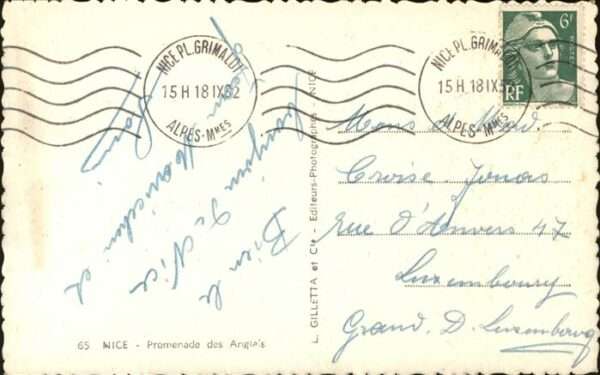 NICE PL. GRIMALDI
15H 18 IX 52
ALPES-MMES
NICE PL. GRIMALDI
15H 18 IX 52
ALPES-MMES
6F
RF
Bien le
bonjour de Nice
et
65 NICE - Promenade des Anglais
L. GILLETTA et Cie - Editeurs-Photographes - NICE
Mons et Mad.
Croisé-Jonas
Rue d'Anvers 47
Luxembourg
Grand. D. Luxembourg